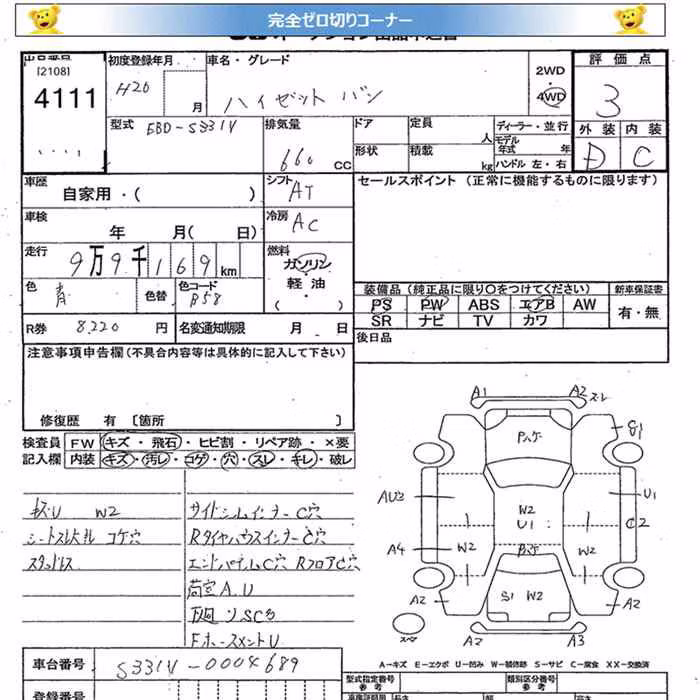 完全ゼロ切りコーナー
出品番号
[2108]
4111
初度登録年月
H20
月
車名・グレード
ハイゼットバン
2WD
・
4WD
評価点
3
外装
内装
D
C
型式 EBD-S331V
排気量
660 cc
ドア
定員
人
形状
積載
kg
ディーラー・並行
モデル年式
年
ハンドル 左・右
車歴
自家用・(　)
シフト
AT
セールスポイント (正常に機能するものに限ります)
車検
年 月( 日)
冷房
AC
走行
9万9千169km
燃料
ガソリン
・
軽油
・
(　)
色
青
色替
色コード
B58
装備品 (純正品に限り〇をつけてください)
新車保証書
PS PW ABS エアB AW
SR ナビ TV カワ
有・無
R券 8,220 円
名変通知期限 月 日
後日品
注意事項申告欄 (不具合内容等は具体的に記入して下さい)
修復歴 有 [箇所 ]
検査員記入欄
FW キズ・飛石・ヒビ割・リペア跡・×要
内装 キズ・汚レ・コゲ・穴・スレ・キレ・破レ
キズU W2
コゲ穴
スタッドレス
サイドシルインナーC穴
RタイヤハウスインナーC穴
エンドパネルC穴 RフロアC穴
荷室A.U
下廻りSC3
FホースメントU
A1
A2
スレ
S1
AU3
U1
W2
U1
C2
A4
W2
W2
A2
S1 W2
A2
A2
A3
A-キズ E-エクボ U-凹み W-補修跡 S-サビ C-腐食 XX-交換済
車台番号 S331V-0004689
型式指定番号
参考
類別区分番号
参考
登録番号